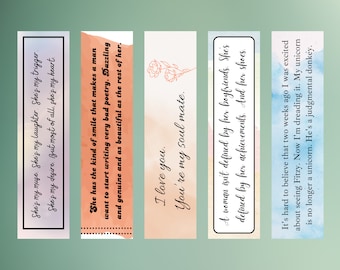 She's my muse. She's my laughter. She's my trigger.
She's my desire. But most of all, she's my heart.
She has the kind of smile that makes a man
want to start writing very bad poetry. Dazzling
and genuine and as beautiful as the rest of her.
I love you.
You're my soul mate.
A woman isn't defined by her boyfriends. She's
defined by her achievements. And her shoes.
It's hard to believe that two weeks ago I was excited
about seeing Fitzy. Now I'm dreading it. My unicorn
is no longer a unicorn. He's a judgmental donkey.